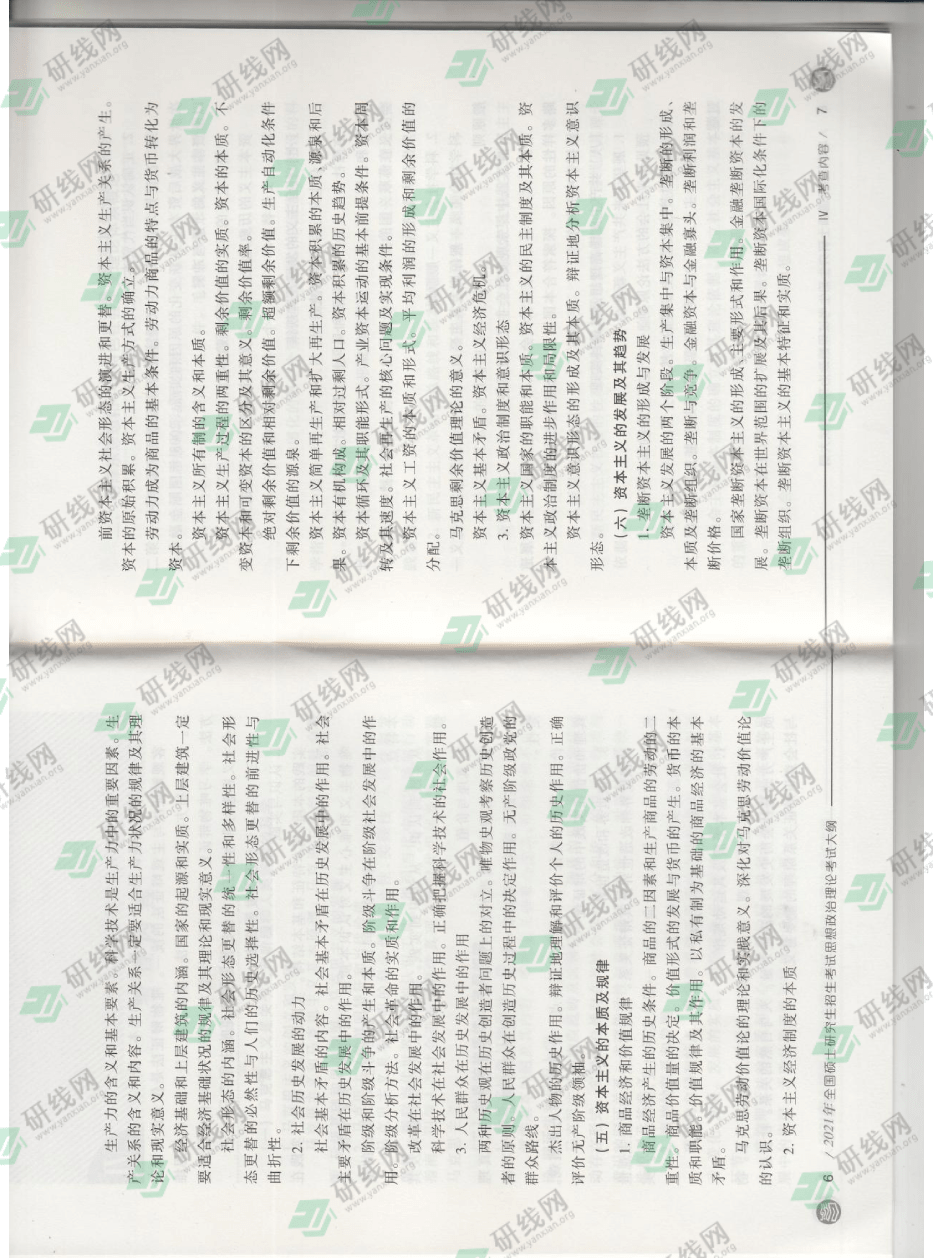 生产力的含义和基本要素。科学技术是生产力中的重要因素。生
产关系的含义和内容。生产关系一定要适合生产力状况的规律及其理
论和现实意义。
经济基础和上层建筑的内涵。国家的起源和实质。上层建筑一定
要适合经济基础状况的规律及其理论和现实意义。
社会形态的内涵。社会形态更替的统一性和多样性。社会形
态更替的必然性与人们的历史选择性。社会形态更替的前进性与
曲折性。
2. 社会历史发展的动力
社会基本矛盾的内容。社会基本矛盾在历史发展中的作用。社会
主要矛盾在历史发展中的作用。
阶级和阶级斗争的产生和本质。阶级斗争在阶级社会发展中的作
用。阶级分析方法。社会革命的实质和作用。
改革在社会发展中的作用。
科学技术在社会发展中的作用。正确把握科学技术的社会作用。
3. 人民群众在历史发展中的作用
两种历史观在历史创造者问题上的对立。唯物史观考察历史创造
者的原则。人民群众在创造历史过程中的决定作用。无产阶级政党的
群众路线。
杰出人物的历史作用。辩证地理解和评价个人的历史作用。正确
评价无产阶级领袖。
(五) 资本主义的本质及规律
1. 商品经济和价值规律
商品经济产生的历史条件。商品的二因素和生产商品的劳动的二
重性。商品价值量的决定。价值形式的发展与货币的产生。货币的本
质和职能。价值规律及其作用。以私有制为基础的商品经济的基本
矛盾。
马克思劳动价值论的理论和实践意义。深化对马克思劳动价值论
的认识。
2. 资本主义经济制度的本质
6 / 2021年全国硕士研究生招生考试思想政治理论考试大纲
前资本主义社会形态的演进和更替。资本主义生产关系的产生。
资本的原始积累。资本主义生产方式的确立。
劳动力成为商品的基本条件。劳动力商品的特点与货币转化为
资本。
资本主义所有制的含义和本质。
资本主义生产过程的两重性。剩余价值的实质。资本的本质。不
变资本和可变资本的区分及其意义。剩余价值率。
绝对剩余价值和相对剩余价值。超额剩余价值。生产自动化条件
下剩余价值的源泉。
资本主义简单再生产和扩大再生产。资本积累的本质、源泉和后
果。资本有机构成。相对过剩人口。资本积累的历史趋势。
资本循环及其职能形式。产业资本运动的基本前提条件。资本周
转及其速度。社会再生产的核心问题及实现条件。
资本主义工资的本质和形式。平均利润的形成和剩余价值的
分配。
马克思剩余价值理论的意义。
资本主义基本矛盾。资本主义经济危机。
3. 资本主义政治制度和意识形态
资本主义国家的职能和本质。资本主义的民主制度及其本质。资
本主义政治制度的进步作用和局限性。
资本主义意识形态的形成及其本质。辩证地分析资本主义意识
形态。
(六) 资本主义的发展及其趋势
1. 垄断资本主义的形成与发展
资本主义发展的两个阶段。生产集中与资本集中。垄断的形成、
本质及垄断组织。垄断与竞争。金融资本与金融寡头。垄断利润和垄
断价格。
国家垄断资本主义的形成、主要形式和作用。金融垄断资本的发
展。垄断资本在世界范围的扩展及其后果。垄断资本国际化条件下的
垄断组织。垄断资本主义的基本特征和实质。
Ⅳ 考查内容 / 7
研线网
www.yanxian.org